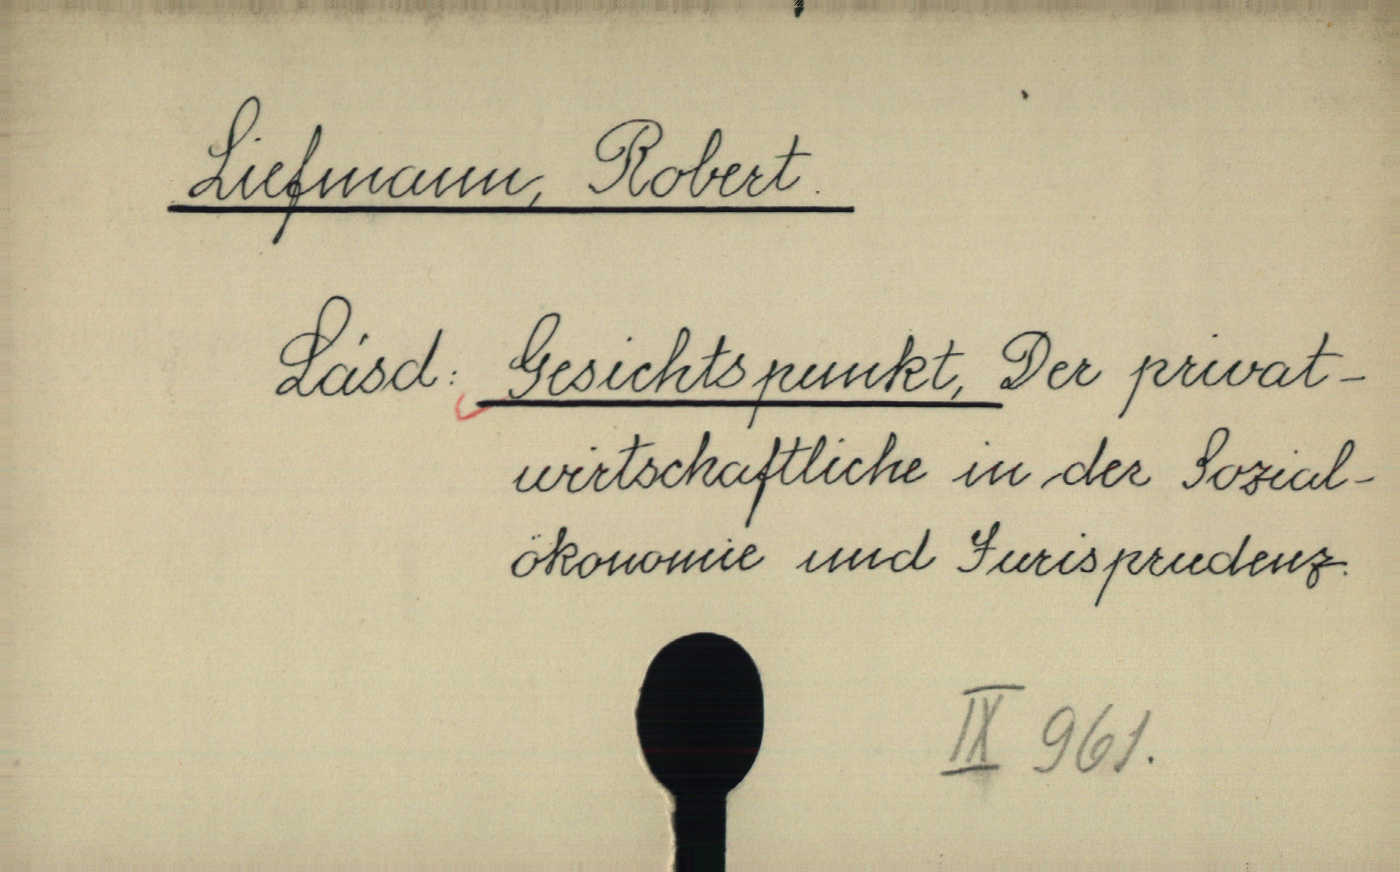 Liefmann, Robert.
Lásd: Gesichtspunkt, Der privat-
wirtschaftliche in der Sozial-
ökonomie und Jurisprudenz.
IX 961.